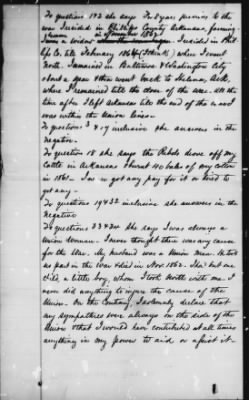 To questions 1 & 2 she says For 8 years previous to the
war I resided in Phillips County Arkansas, farming
I was a widow I resided in Phil
lips Co. till February when I went
North. I remained in Baltimore & Washington City
about a year & then went back to Helena, Ark.
where I remained till the close of the war. All the
time after I left Arkansas till the end of the war I
was within the Union lines.
To questions 3 & 17 inclusive she answers in the
negative.
To question 18 she says the Rebels drove off my
Cattle in Arkansas & burnt 40 bales of my cotton
in 1862. I never got any pay for it or tried to
get any.
To questions 19 & 32 inclusive she answers in the
negative
To questions 33 & 34 She says I was always a
Union woman. I never thought there was any cause
for the War. My husband was a Union Man. He took
no part in the war & died in Nov 1862. I had but one
child, a little boy, whom I took North with me. I
never did anything to injure the cause of the
Union. On the Contrary, I solemnly declare that
my sympathies were always on the side of the
Union & that I would have contributed at all times
anything in my power to aid or assist it.